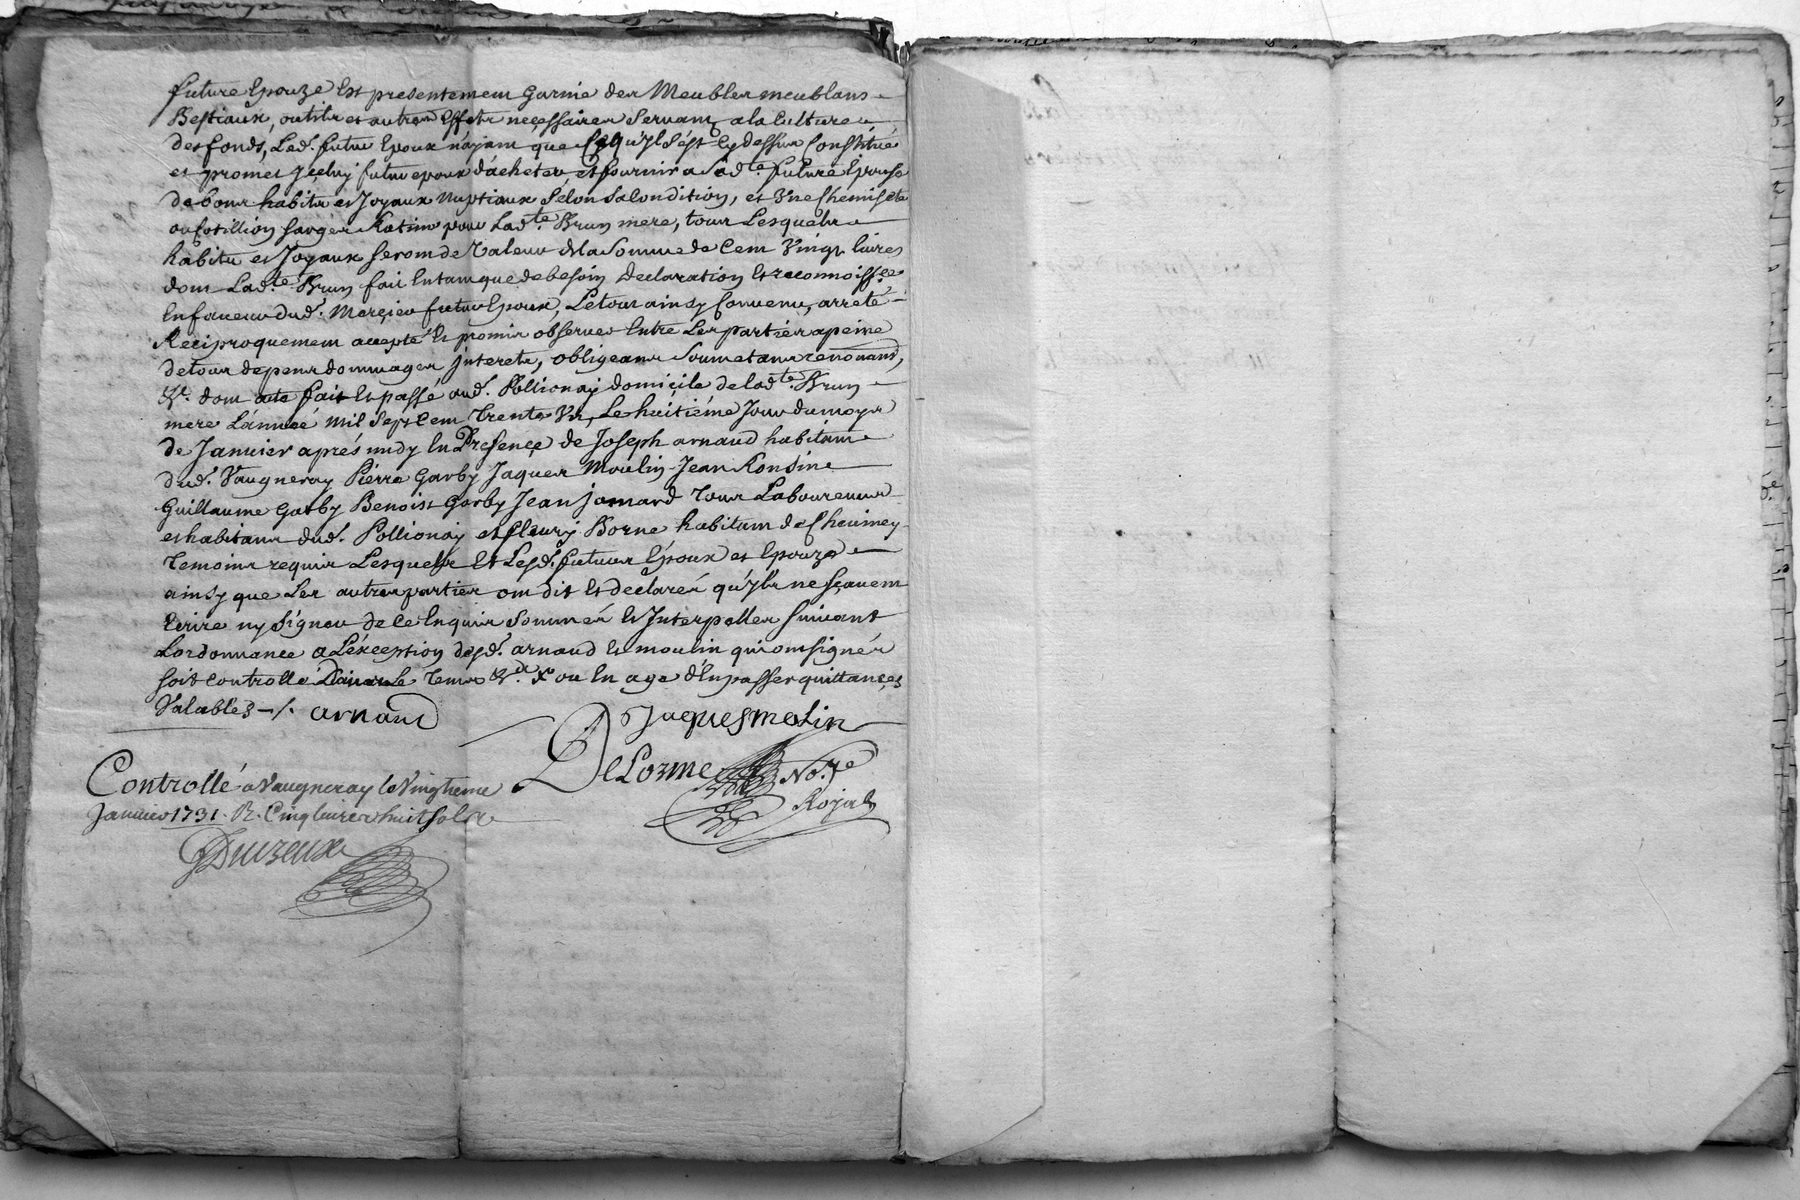 future Epouze Est presentement garnie des Meubles meublans
Bestiaux, outils et autres Effets neçessaires servant a la Culture
des fonds, Led. futur Epoux n'ayant que Ce qu'il s'est Cy dessus Constitué
et promet yçeluy futur epoux d'acheter et fournir a Sad.te future Epouse
de bons habits et Joyaux nuptiaux Selon Sa Condition, et Une Chemisete
ou Cotillion sarge Ratine pour Lad.te Brun mere, tous Lesquels
habits et Joyaux seront de Valeur de la Somme de Cent Vingt livres
dont Lad.te Brun fait Entant que de besoin Declaration Et reconnoiss.ce
En faveur dud. Merçier futur Epoux, Le tout ainsy Convenu, arreté
Reciproquement accepté Et promis observer Entre Les parties a peine
de tous depens dommages Interets, obligeans Soumetans renonçans,
&.a dont acte fait Et passé aud. Pollionay domiçile de lad.te Brun
mere L'année mil Sept Cent Trente Un, Le huitiéme Jour du moys
de Janvier aprés midy En Presençe de Joseph arnaud habitant
dud. Vaugneray Pierre Garby Jaques Moulin Jean Ronsine
Guillaume Garby Benoist Garby Jean jomard Tous Laboureurs
et habitans dud. Pollionay et fleury Borne habitant de Cheviney
Temoins requis Lesquels Et Lesd. futurs Epoux et Epouze
ainsy que Les autres parties ont dit Et declarés qu'yls ne sçavent
Ecrire ny Signer de Ce Enquis Sommés Et Interpellés suivant
L'ordonnance a L'éxception desd. arnaud Et moulin qui ont signés
soit controllé Dans Le Tems &.a X ou En age d'En passer quittançes
Valables -/. arnaud
Jaques molin
DeLorme No.re
Royal
Controllé a Vaugneray le Vingtieme
Janvier 1731. R. Cinq livres huit sols
Duizeux